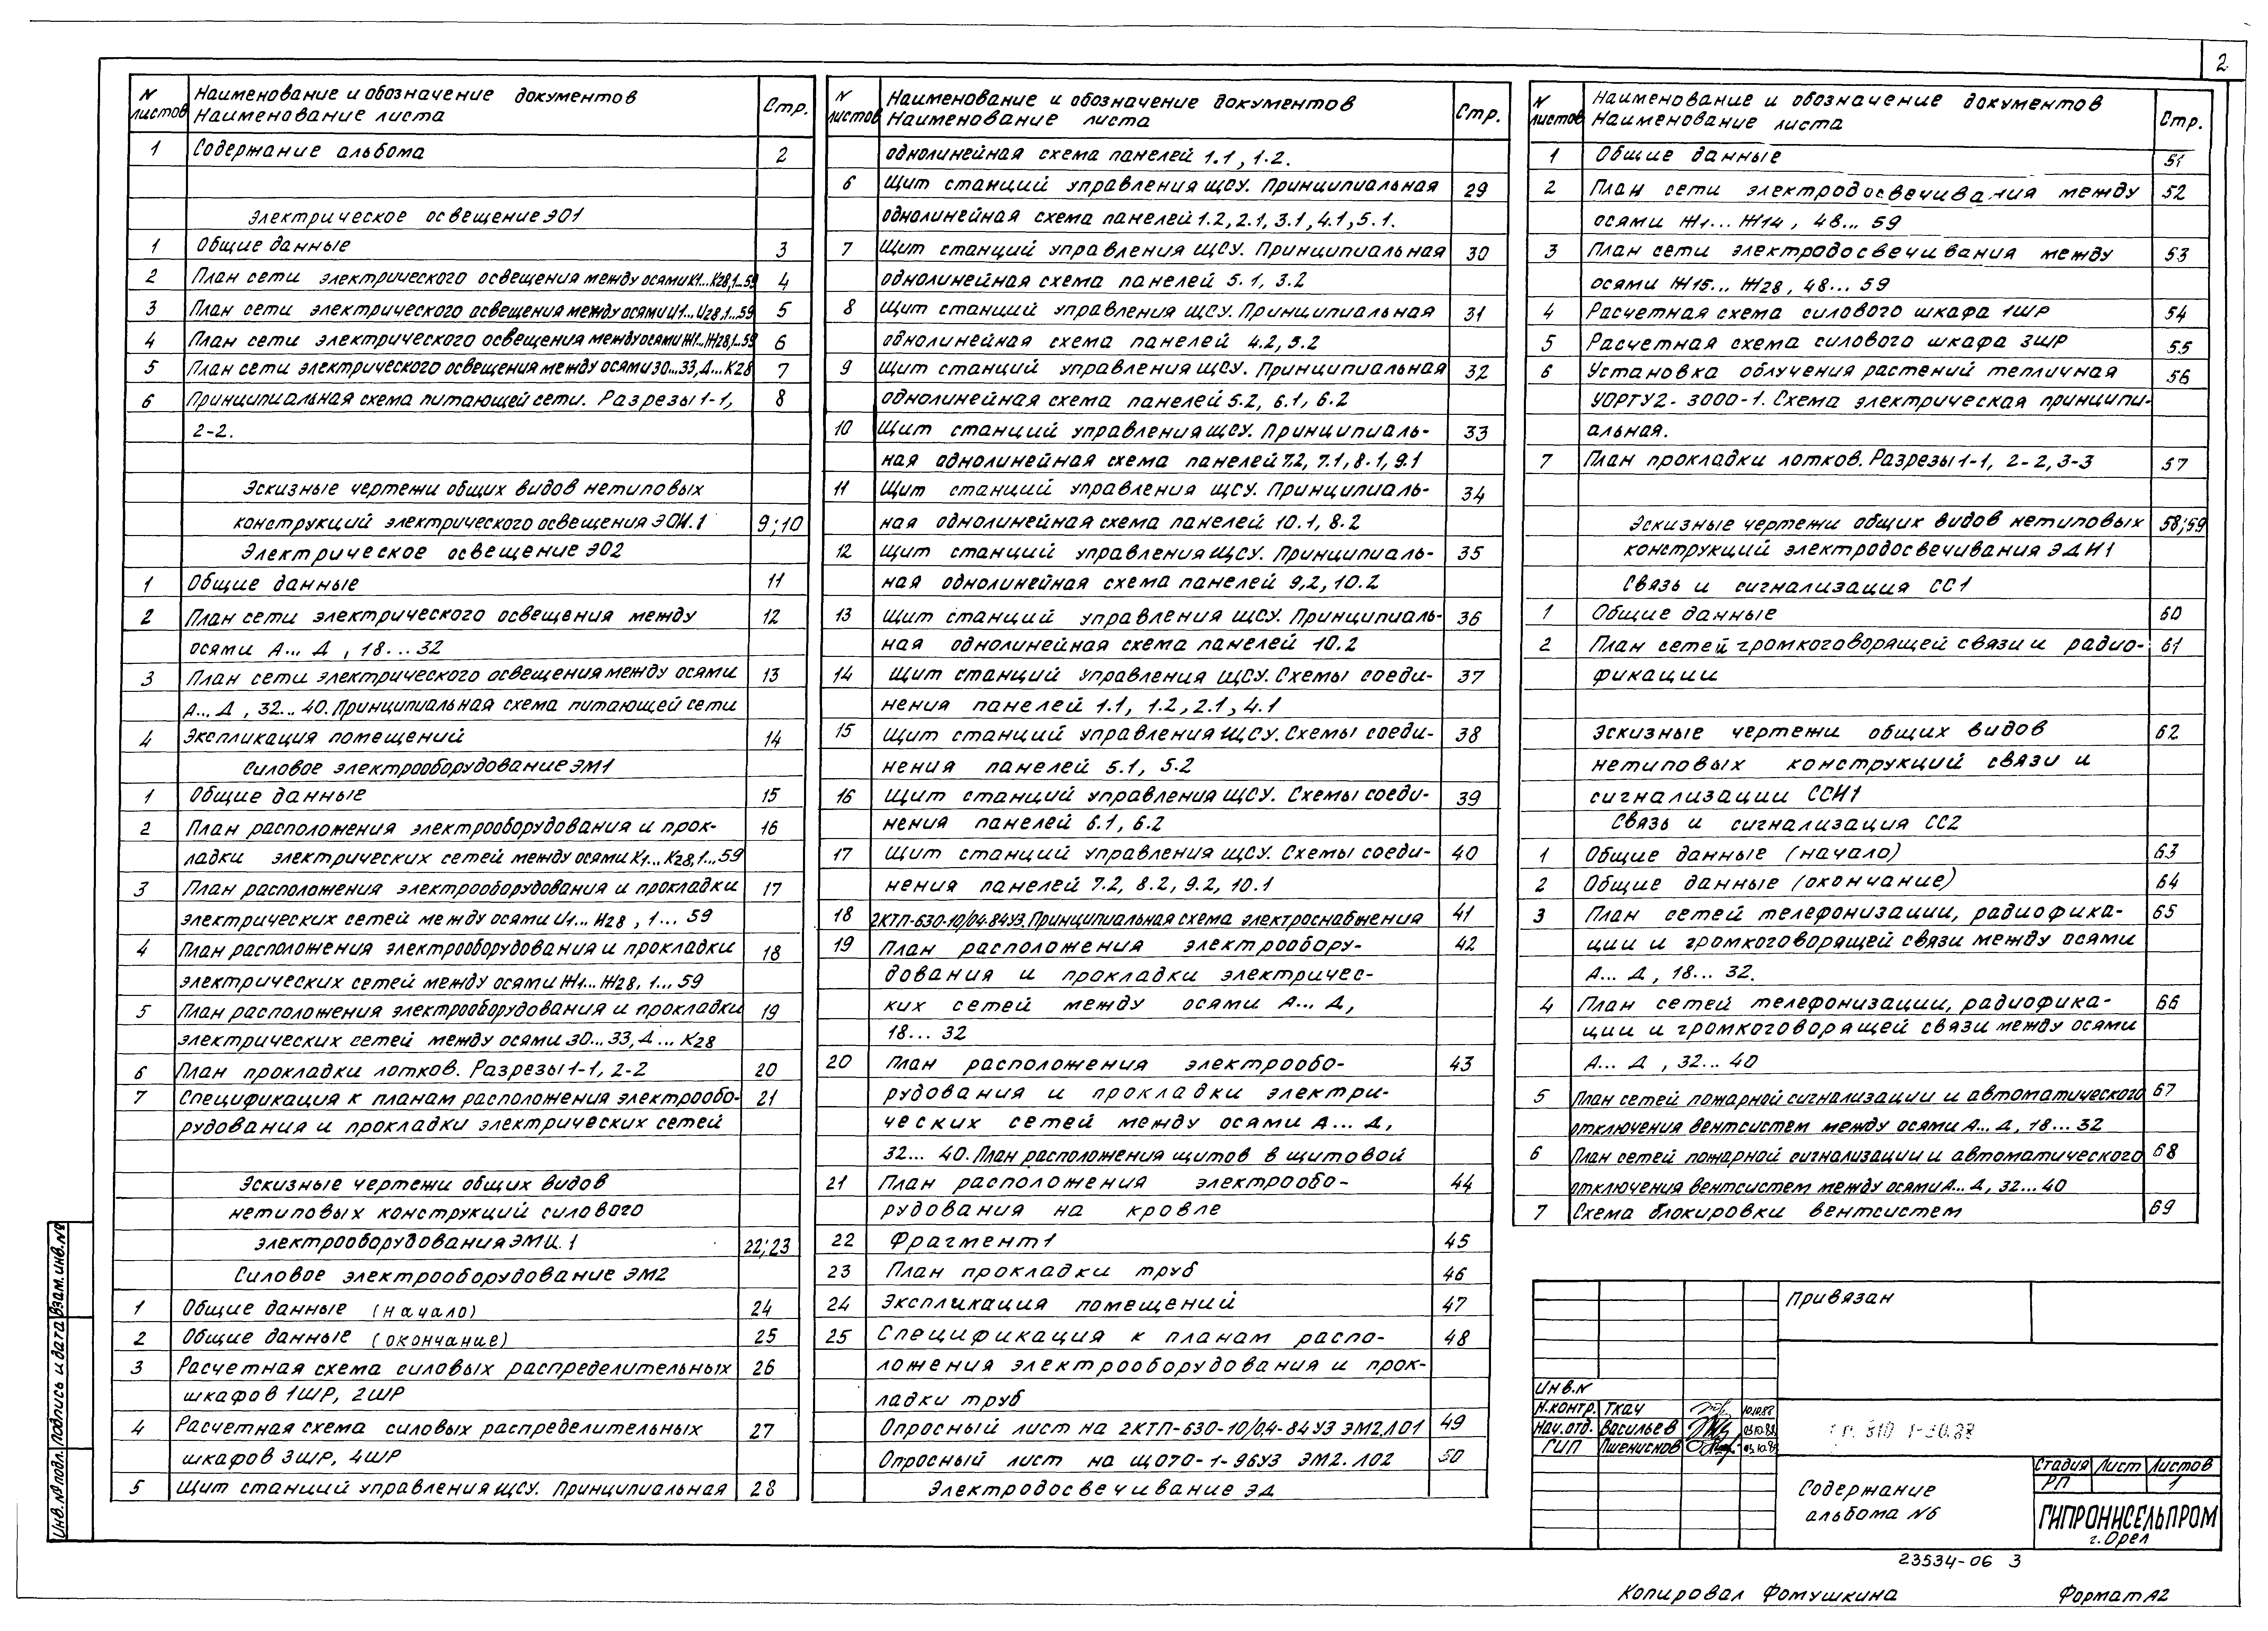 2
N листов Наименование и обозначение документов Наименование листа Стр.
1 Содержание альбома 2
Электрическое освещение ЭО1
1 Общие данные 3
2 План сети электрического освещения между осями К1...К28,1...59 4
3 План сети электрического освещения между осями И1...И28,1...59 5
4 План сети электрического освещения между осями Ж1...Ж28,1...59 6
5 План сети электрического освещения между осями 30...33, Д...К28 7
6 Принципиальная схема питающей сети. Разрезы 1-1, 8
2-2.
Эскизные чертежи общих видов нетиповых
конструкций электрического освещения ЭОИ.1 9;10
Электрическое освещение ЭО2
1 Общие данные 11
2 План сети электрического освещения между 12
осями А...Д, 18...32
3 План сети электрического освещения между осями 13
А...Д, 32...40. Принципиальная схема питающей сети
4 Экспликация помещений 14
Силовое электрооборудование ЭМ1
1 Общие данные 15
2 План расположения электрооборудования и прок- 16
ладки электрических сетей между осями К1...К28,1...59
3 План расположения электрооборудования и прокладки 17
электрических сетей между осями И1...И28, 1...59
4 План расположения электрооборудования и прокладки 18
электрических сетей между осями Ж1...Ж28, 1...59
5 План расположения электрооборудования и прокладки 19
электрических сетей между осями 30...33, Д...К28
6 План прокладки лотков. Разрезы 1-1, 2-2 20
7 Спецификация к планам расположения электрообо- 21
рудования и прокладки электрических сетей
Эскизные чертежи общих видов
нетиповых конструкций силового
электрооборудования ЭМИ.1 22;23
Силовое электрооборудование ЭМ2
1 Общие данные (начало) 24
2 Общие данные (окончание) 25
3 Расчетная схема силовых распределительных 26
шкафов 1ШР, 2ШР
4 Расчетная схема силовых распределительных 27
шкафов 3ШР, 4ШР
5 Щит станций управления ЩСУ. Принципиальная 28
N листов Наименование и обозначение документов Наименование листа Стр.
однолинейная схема панелей 1.1, 1.2.
6 Щит станций управления ЩСУ. Принципиальная 29
однолинейная схема панелей 1.2, 2.1, 3.1, 4.1, 5.1.
7 Щит станций управления ЩСУ. Принципиальная 30
однолинейная схема панелей 5.1, 3.2
8 Щит станций управления ЩСУ. Принципиальная 31
однолинейная схема панелей 4.2, 5.2
9 Щит станций управления ЩСУ. Принципиальная 32
однолинейная схема панелей 5.2, 6.1, 6.2
10 Щит станций управления ЩСУ. Принципиаль- 33
ная однолинейная схема панелей 7.2, 7.1, 8.1, 9.1
11 Щит станций управления ЩСУ. Принципиаль- 34
ная однолинейная схема панелей 10.1, 8.2
12 Щит станций управления ЩСУ. Принципиаль- 35
ная однолинейная схема панелей 9,2, 10.2
13 Щит станций управления ЩСУ. Принципиаль- 36
ная однолинейная схема панелей 10.2
14 Щит станций управления ЩСУ. Схемы соеди- 37
нения панелей 1.1, 1.2, 2.1, 4.1
15 Щит станций управления ЩСУ. Схемы соеди- 38
нения панелей 5.1, 5.2
16 Щит станций управления ЩСУ. Схемы соеди- 39
нения панелей 6.1, 6.2
17 Щит станций управления ЩСУ. Схемы соеди- 40
нения панелей 7.2, 8.2, 9.2, 10.1
18 2КТП-630-10/04-84У3. Принципиальная схема электроснабжения 41
19 План расположения электрообору- 42
дования и прокладки электричес-
ких сетей между осями А...Д,
18...32
20 План расположения электрообо- 43
рудования и прокладки электри-
ческих сетей между осями А...Д,
32...40. План расположения щитов в щитовой
21 План расположения электрообо- 44
рудования на кровле
22 Фрагмент 1 45
23 План прокладки труб 46
24 Экспликация помещений 47
25 Спецификация к планам распо- 48
ложения электрооборудования и прок-
ладки труб
Опросный лист на 2КТП-630-10/0,4-84У3 ЭМ2.Л01 49
Опросный лист на ЩО70-1-96У3 ЭМ2.Л02 50
Электродосвечивание ЭД
N листов Наименование и обозначение документов Наименование листа Стр.
1 Общие данные 51
2 План сети электродосвечивания между 52
осями Ж1...Ж14, 48...59
3 План сети электродосвечивания между 53
осями Ж15...Ж28, 48...59
4 Расчетная схема силового шкафа 1ШР 54
5 Расчетная схема силового шкафа 3ШР 55
6 Установка облучения растений тепличная 56
УОРТУ2-3000-1. Схема электрическая принципи-
альная.
7 План прокладки лотков. Разрезы 1-1, 2-2, 3-3 57
Эскизные чертежи общих видов нетиповых 58;59
конструкций электродосвечивания ЭДИ1
Связь и сигнализация СС1
1 Общие данные 60
2 План сетей громкоговорящей связи и радио- 61
фикации
Эскизные чертежи общих видов 62
нетиповых конструкций связи и
сигнализации ССИ1
Связь и сигнализация СС2
1 Общие данные (начало) 63
2 Общие данные (окончание) 64
3 План сетей телефонизации, радиофика- 65
ции и громкоговорящей связи между осями
А...Д, 18...32.
4 План сетей телефонизации, радиофика- 66
ции и громкоговорящей связи между осями
А...Д, 32...40
5 План сетей пожарной сигнализации и автоматического 67
отключения вентсистем между осями А...Д, 18...32
6 План сетей пожарной сигнализации и автоматического 68
отключения вентсистем между осями А...Д, 32...40
7 Схема блокировки вентсистем 69
Привязан
Инв.N
Н.контр. Ткач 10.10.88
Нач.отд. Васильев 03.10.88
ГИП Пшениснов 03.10.88
Содержание
альбома N6
Стадия Лист Листов
РП 1
ГИПРОНИСЕЛЬПРОМ
г. Орел
23534-06 3
Копировал Фомушкина Формат А2
Инв.№ подл. Подпись и дата Взам.инв.№